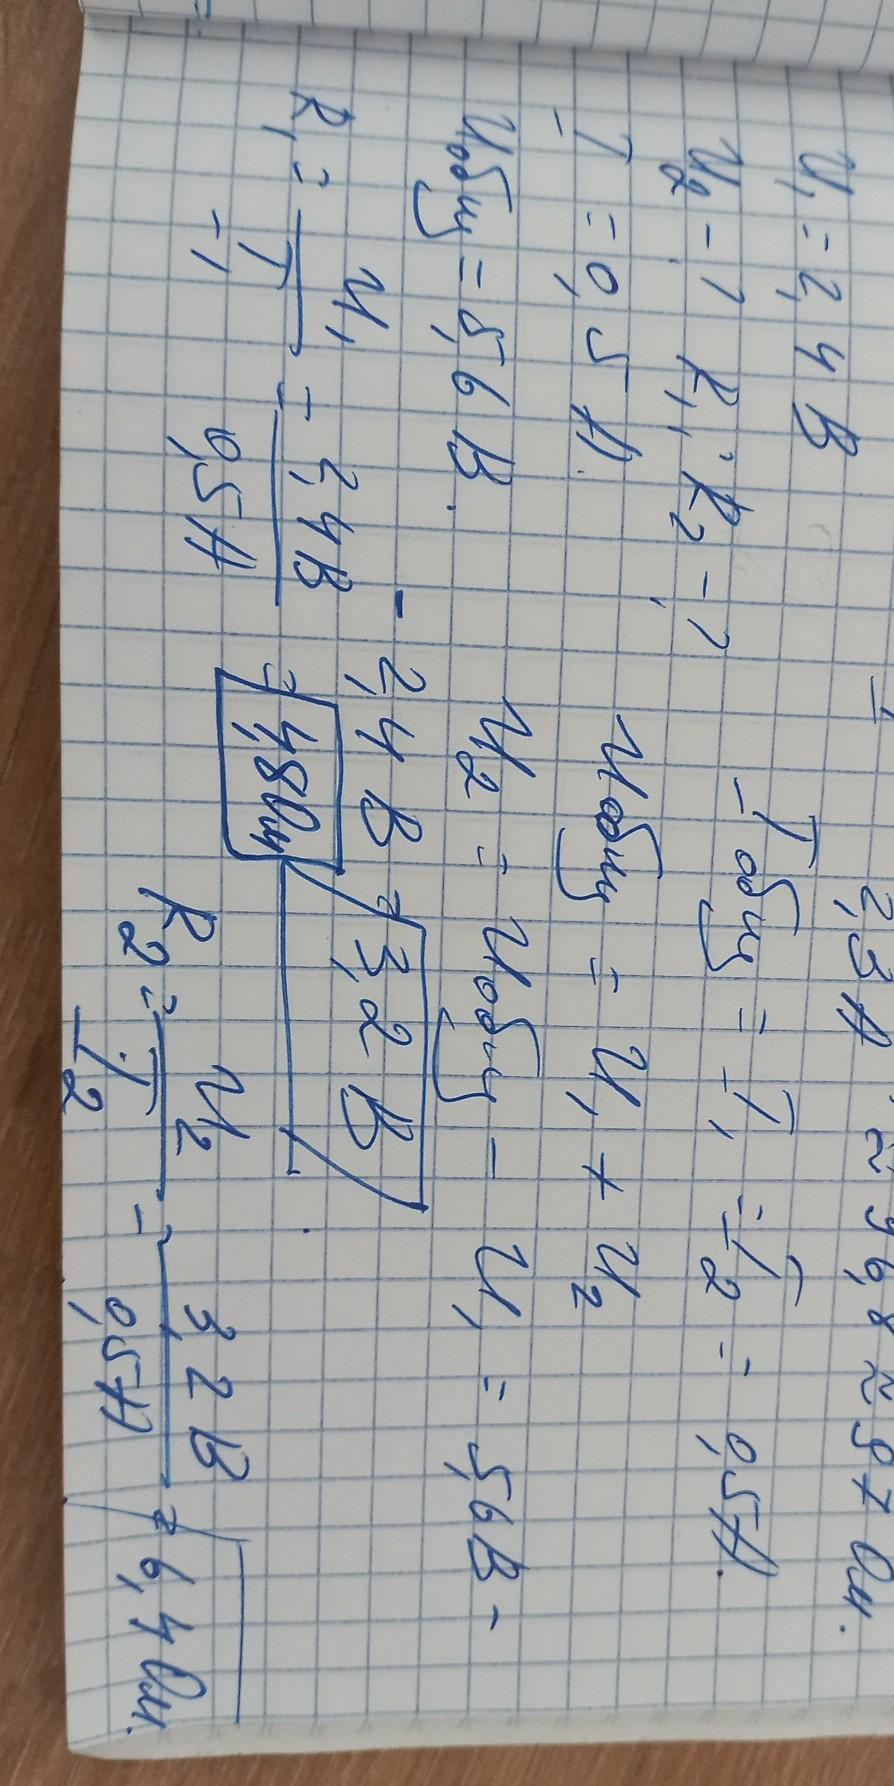 2,3 А ≈ 96,8 ≈ 97 Ом.
U₁ = 2,4 В
U₂ - ? R₁, R₂ - ?
I = 0,5 А.
Uобщ = 5,6 В.
Iобщ = I₁ = I₂ = 0,5 А.
Uобщ = U₁ + U₂
U₂ = Uобщ - U₁ = 5,6 В -
- 2,4 В = 3,2 В
R₁ = U₁ / I₁ = 2,4 В / 0,5 А = 4,8 Ом
R₂ = U₂ / I₂ = 3,2 В / 0,5 А = 6,4 Ом.